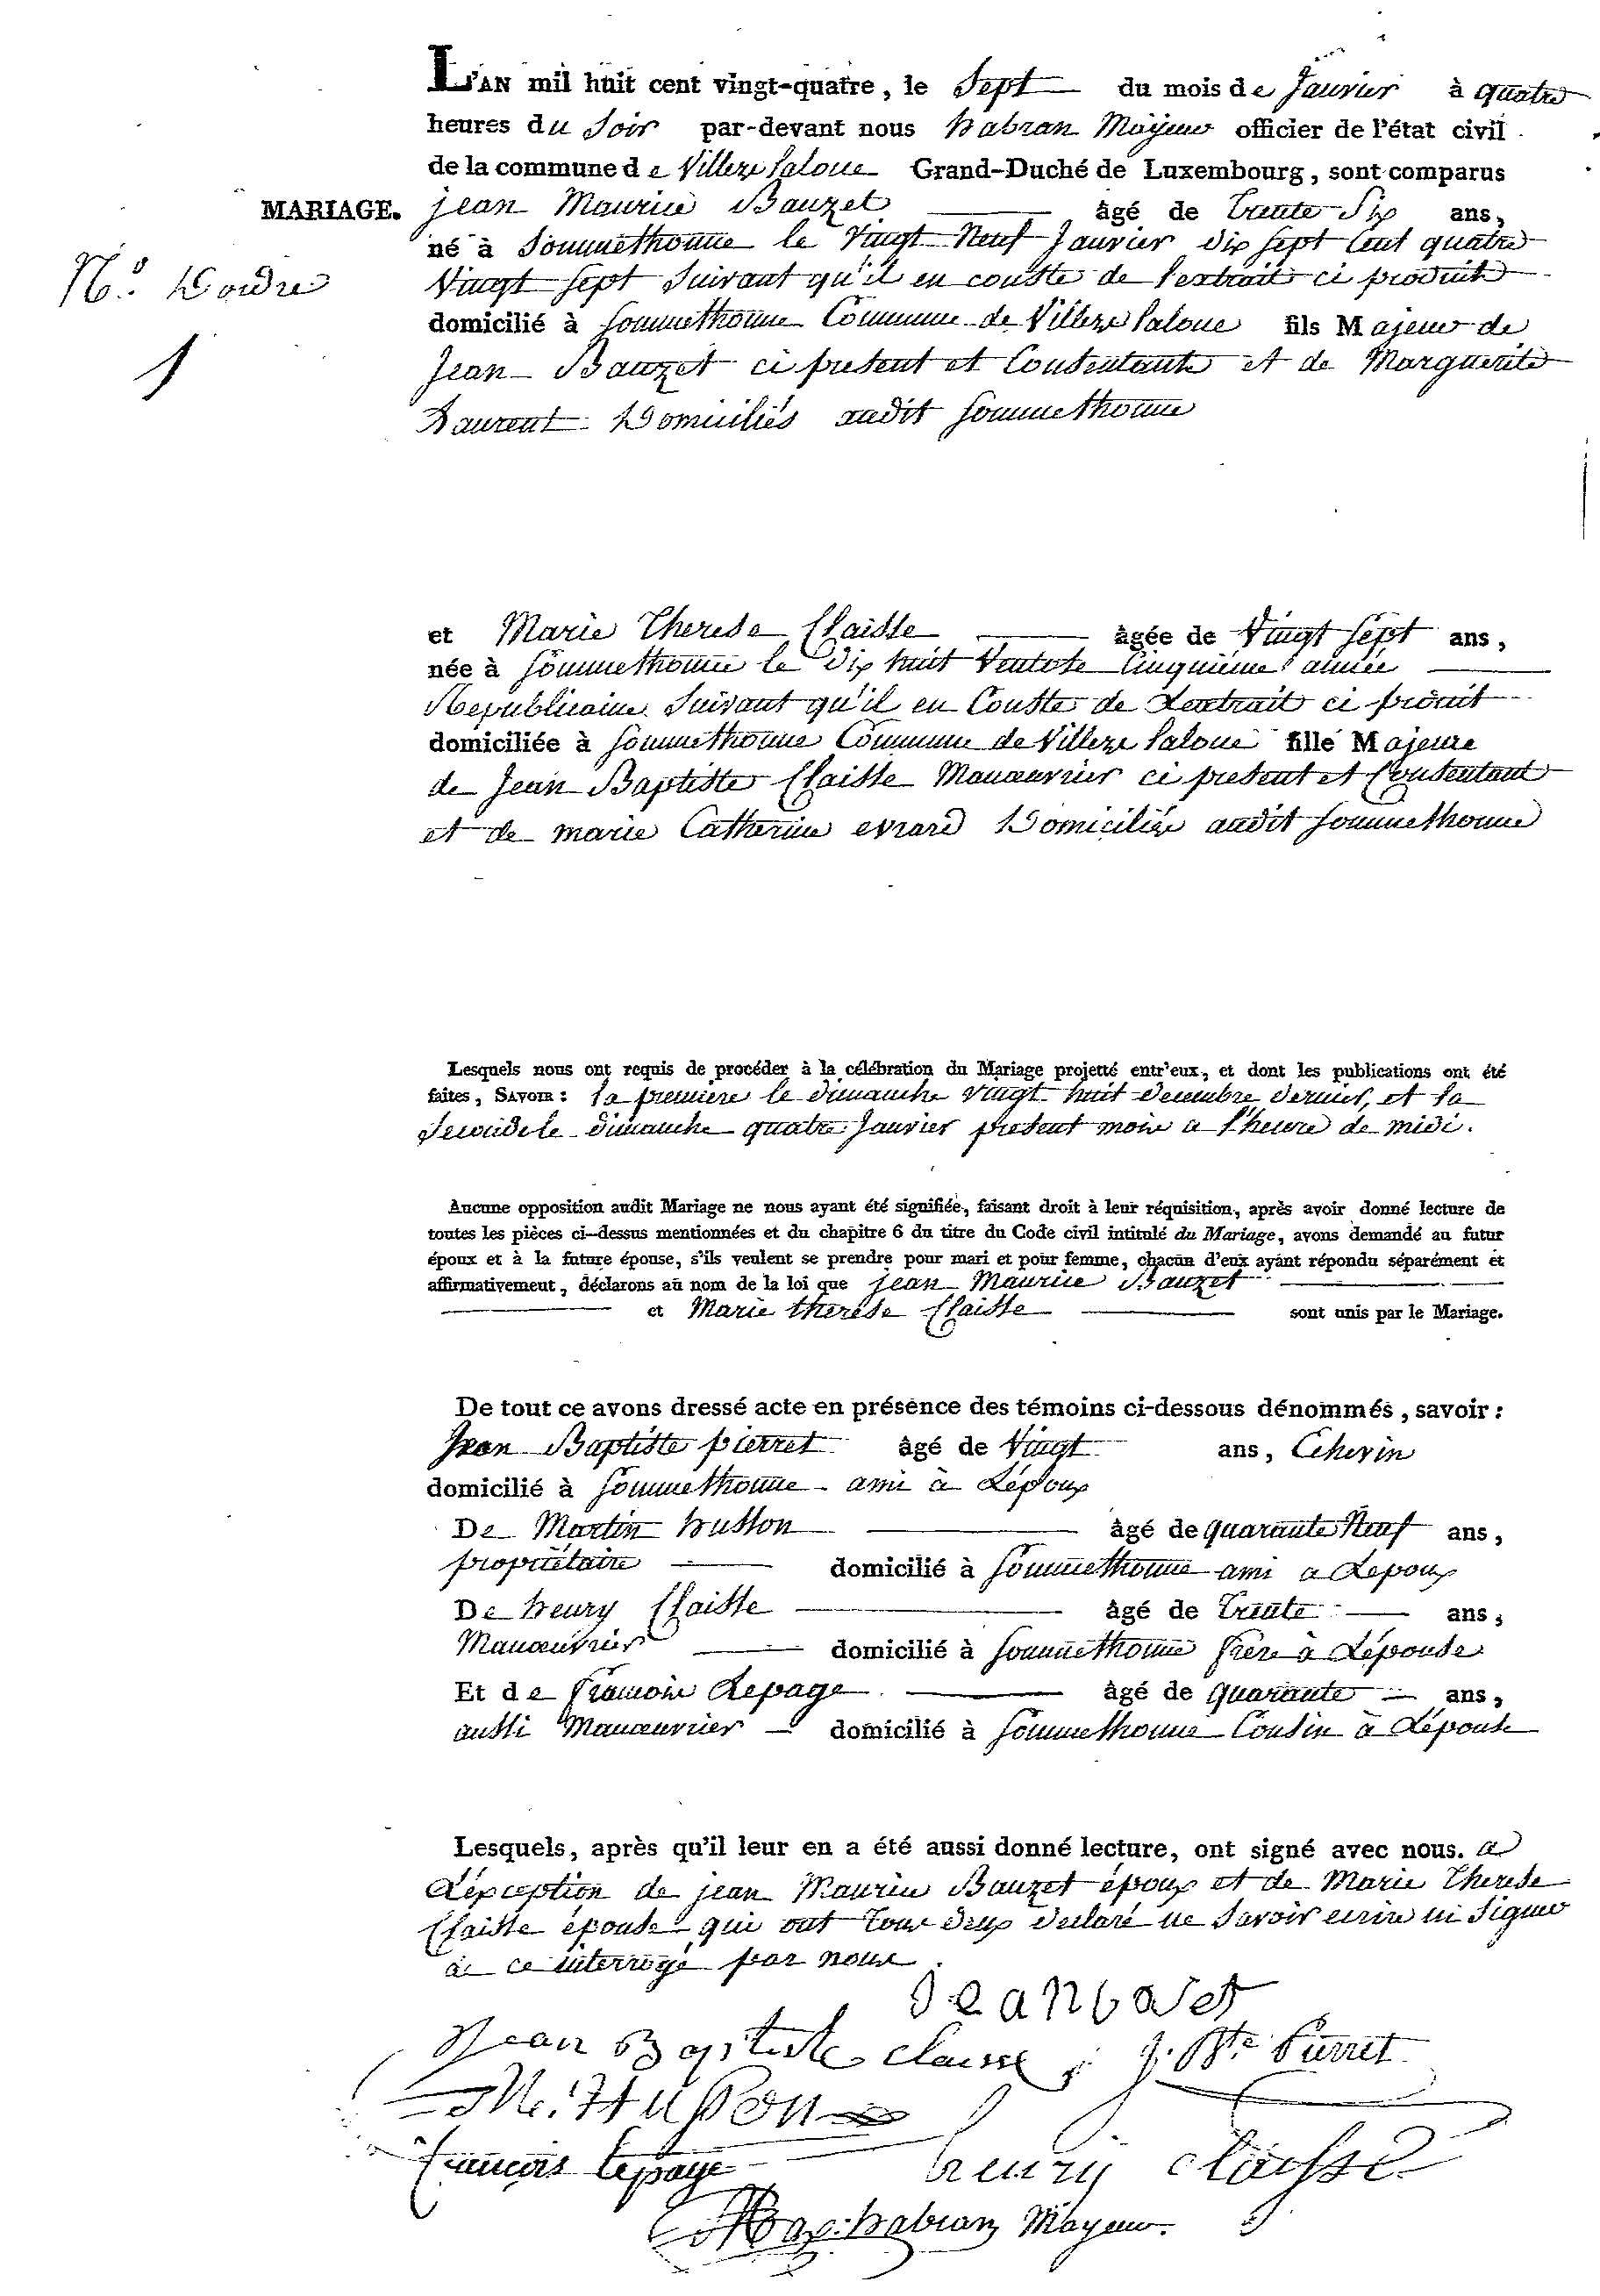 L'AN mil huit cent vingt-quatre, le Sept du mois de Janvier à quatre
heures du Soir par-devant nous habran Mayeur officier de l'état civil
de la commune de Villers laloue Grand-Duché de Luxembourg, sont comparus
MARIAGE. jean Maurice Bauzet âgé de trente Six ans,
né à Sommethonne le Vingt Neuf Janvier dix sept Cent quatre
N.º D'ordre
Vingt sept Suivant qu'il en conste de l'extrait ci produit
domicilié à Sommethonne Commune de Villers laloue fils Majeur de
1
Jean Bauzet ci présent et Consentant et de Marguerite
Laurent Domiciliés audit Sommethonne
et Marie Therese Claisse âgée de Vingt Sept ans,
née à Sommethonne le Dix huit Ventose Cinquième année
Republicaine Suivant qu'il en Conste de Lextrait ci produit
domiciliée à Sommethonne Commune de Villers laloue fille Majeure
de Jean Baptiste Claisse Manœuvrier ci présent et Consentant
et de marie Catherine evrard Domiciliés audit Sommethonne
Lesquels nous ont requis de procéder à la célébration du Mariage projetté entr'eux, et dont les publications ont été
faites, SAVOIR : la première le dimanche vingt huit decembre dernier, et la
Seconde le dimanche quatre Janvier present mois a l'heure de midi.
Aucune opposition audit Mariage ne nous ayant été signifiée, faisant droit à leur réquisition, après avoir donné lecture de
toutes les pièces ci-dessus mentionnées et du chapitre 6 du titre du Code civil intitulé du Mariage, avons demandé au futur
époux et à la future épouse, s'ils veulent se prendre pour mari et pour femme, chacun d'eux ayant répondu séparément et
affirmativement, déclarons au nom de la loi que jean Maurice Bauzet
et Marie therese Claisse sont unis par le Mariage.
De tout ce avons dressé acte en présence des témoins ci-dessous dénommés, savoir :
Jean Baptiste pierret âgé de Vingt ans, Echevin
domicilié à Sommethonne ami à Lépoux
De Martin husson âgé de quarante Neuf ans,
propriétaire domicilié à Sommethonne ami a Lepoux
De henry Claisse âgé de Trente ans,
Manœuvrier domicilié à Sommethonne frère à Lépouse
Et de François Lepage âgé de quarante ans,
aussi Manœuvrier domicilié à Sommethonne Cousin à Lépouse
Lesquels, après qu'il leur en a été aussi donné lecture, ont signé avec nous. a
Lexception de jean Maurice Bauzet époux et de Marie Therese
Claisse épouse qui ont tous deux declaré ne Savoir ecrire ni Signer
à ce interrogé par nous
Jean
Jean Baptiste claisse J. Bte Pierret
M. Husson
françois Lepage henry claisse
habran Mayeur.